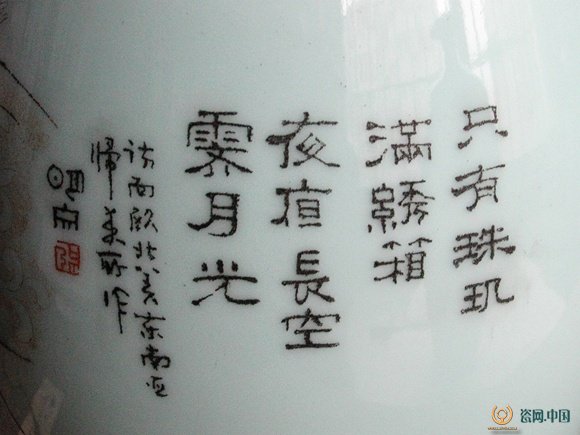 只有珠玑
满绣箱
夜值長空
霁月光
访西欧北美东南亚
帰来所作
明
瓷网.中国